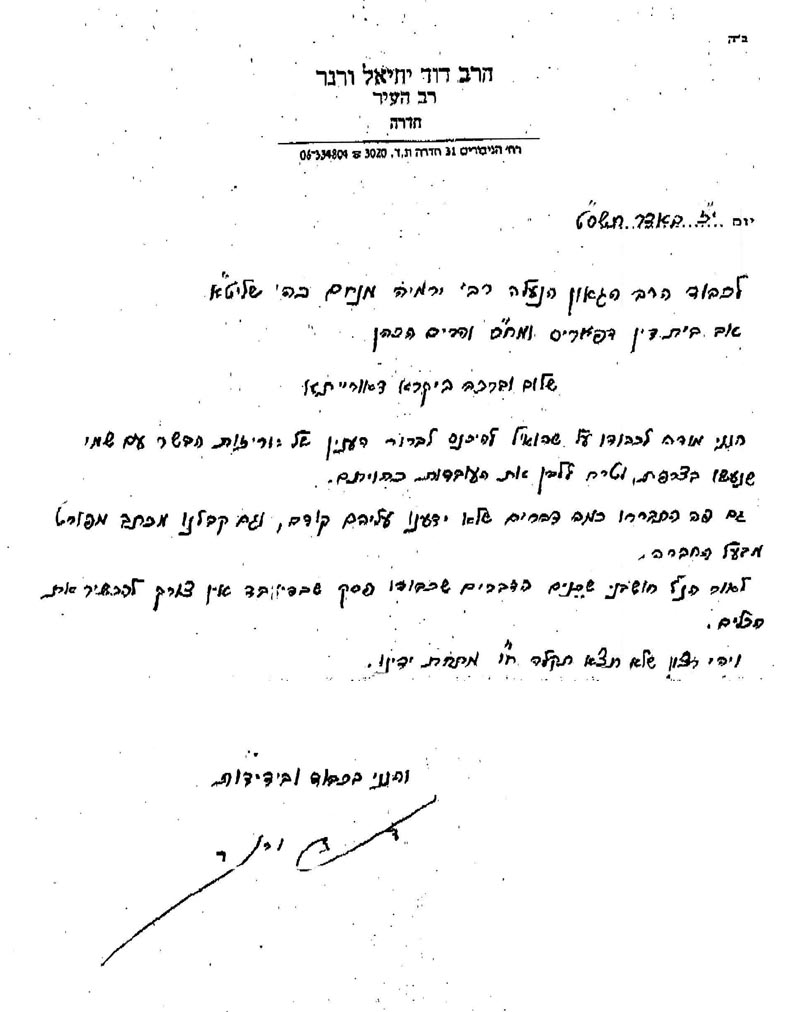 ב"ה
הרב דוד יחיאל ורנר
רב העיר
חדרה
רח' הגיבורים 31 חדרה ת.ד. 3020 ☎ 06-334804
יום י"ז באדר תשס"ט
לכבוד הרב הגאון הנעלה רבי ירמיה מנחם כהן שליט"א
אב בית דין דפאריס ומח"ס והרים הכהן
שלום וברכה ביקרא דאורייתא
הנני מודה לכבודו על שהואיל להיכנס לברור הענין של אריזות הבשר עם שמי
שנעשו בצרפת, וטרח ללבן את העובדות כהויתם.
גם פה התבררו כמה דברים שלא ידענו עליהם קודם, וגם קבלנו מכתב מפורט
מבעל החברה.
לאור הנ"ל חושבני שכנים הדברים שכבודו פסק שבדיעבד אין צורך להכשיר את
הכלים.
ויהי רצון שלא תצא תקלה ח"ו מתחת ידינו.
והנני בכבוד ובידידות
ד י ורנר